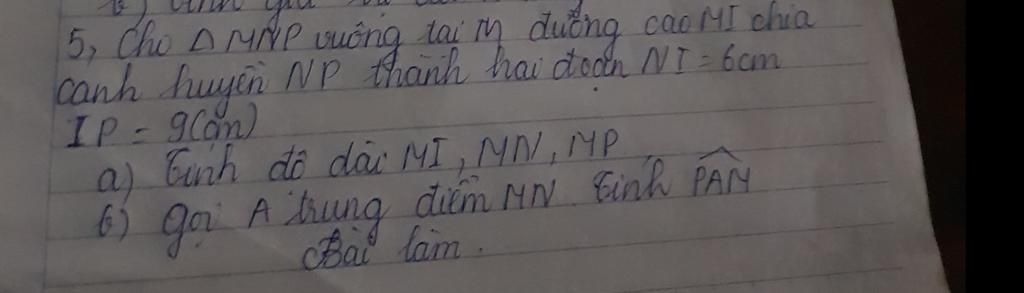 5, Cho Δ MNP vuông tại M đường cao MI chia
cạnh huyền NP thành hai đoạn NI = 6cm
IP = 9(cm)
a) Tính độ dài MI, MN, MP
b) gọi A trung điểm MN. Tính PAM
Bài làm.